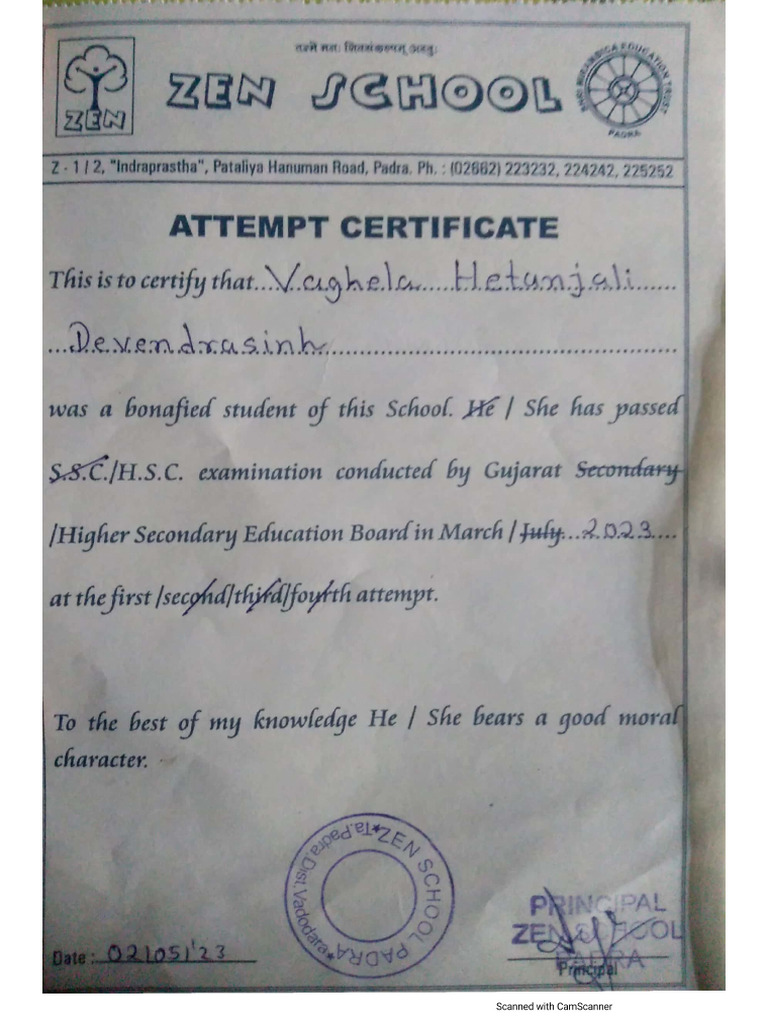 ZEN
तन्मे मनः शिवसंकल्पम् अस्तु:
ZEN SCHOOL
SHRI BHRAMBICA EDUCATION TRUST
PADRA
Z - 1 / 2, "Indraprastha", Pataliya Hanuman Road, Padra. Ph. : (02662) 223232, 224242, 225252
ATTEMPT CERTIFICATE
This is to certify that...Vaghela Hetanjali......
...Devendrasinh...
was a bonafied student of this School. He / She has passed
S.S.C./H.S.C. examination conducted by Gujarat Secondary
/Higher Secondary Education Board in March / July...2023....
at the first /second/third/fourth attempt.
To the best of my knowledge He / She bears a good moral
character.
ZEN SCHOOL PADRA * Ta.Padra,Dist.Vadodara *
PRINCIPAL
ZEN SCHOOL
PADRA
Date : 02/05/'23
Principal
Scanned with CamScanner